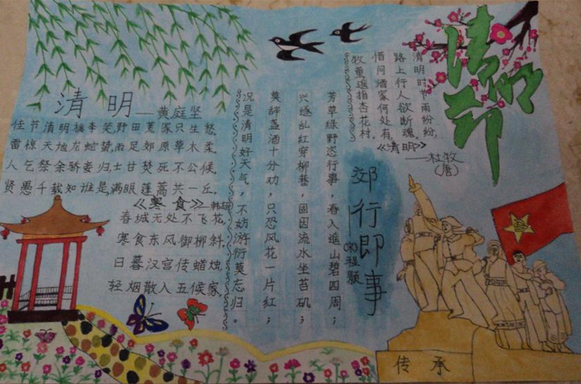 清明节
清明时节雨纷纷,
路上行人欲断魂,
借问酒家何处有
牧童遥指杏花村,
《清明》
—杜牧
(唐)
郊行即事
(宋)程颢
芳草绿野恣行事,春入遥山碧四周;
兴逐乱红穿柳巷,困因流水坐苔矶;
莫辞盏酒十分劝,只恐风花一片红;
况是清明好天气,不妨游衍莫忘归。
清明—黄庭坚
佳节清明桃李笑野田荒冢只生愁
雷惊天地龙蛇蛰雨足郊原草木柔,
人乞祭余骄妾归士甘焚死不公候,
贤愚千载知谁是满眼蓬蒿共一丘,
《寒食》
春城无处不飞花,
寒食东风御柳斜.
日暮汉宫传蜡烛
轻烟散入五候家
传承